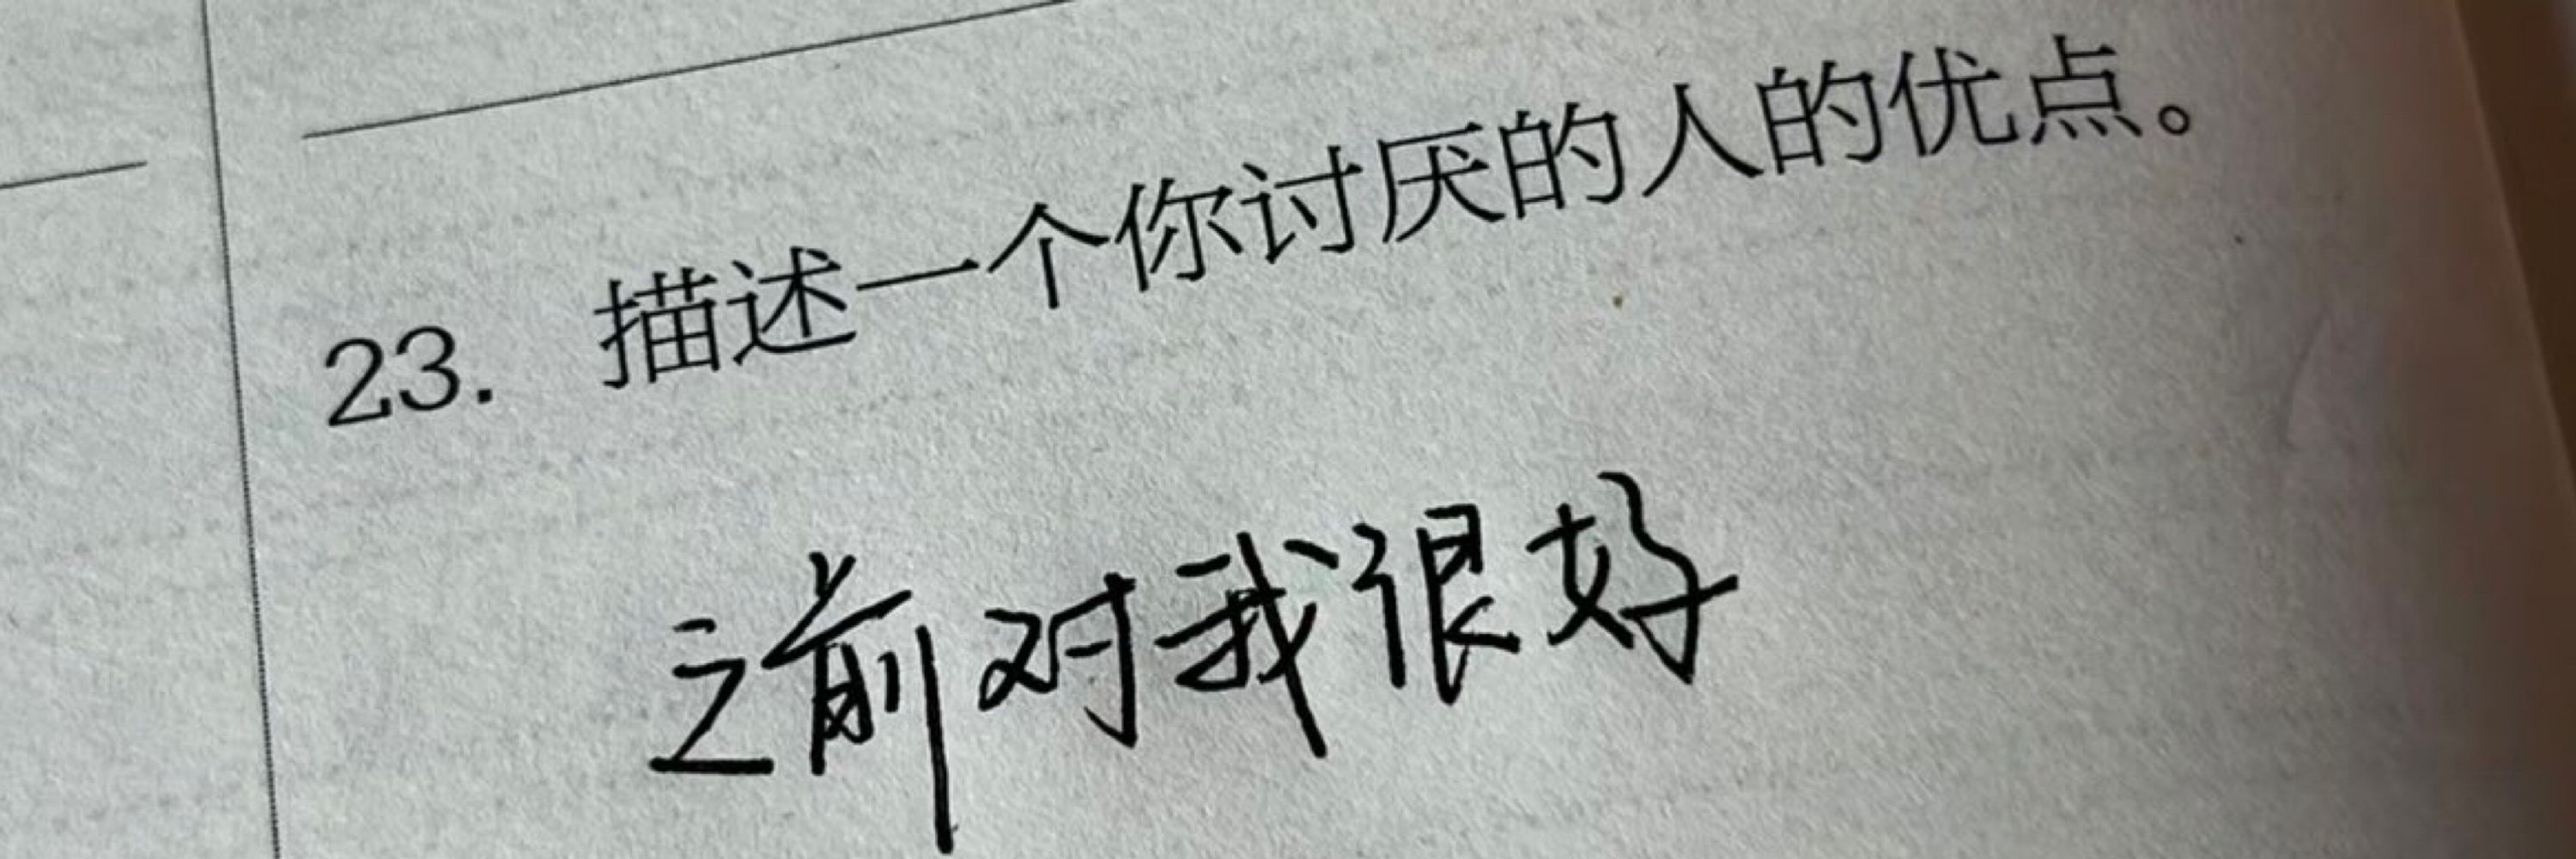 23. 描述一个你讨厌的人的优点。
之前对我很好